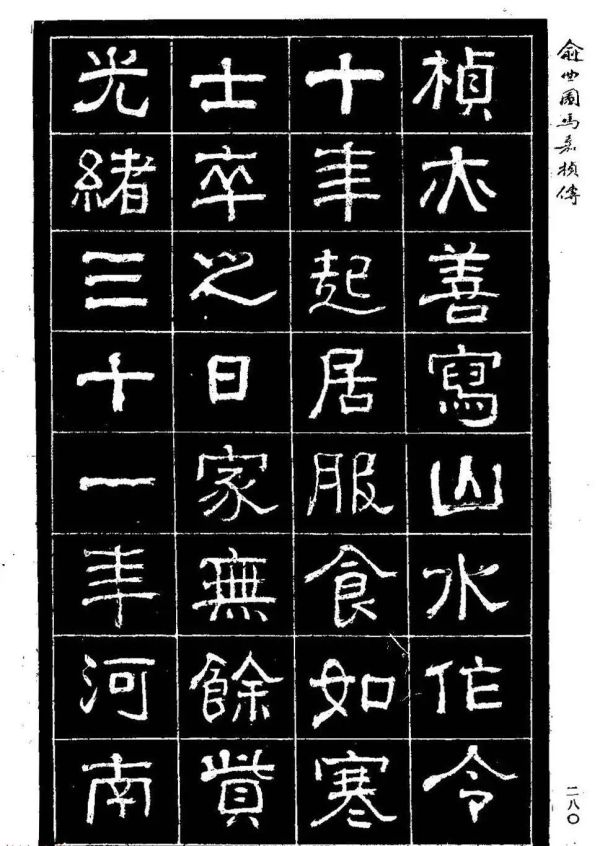 俞曲園馬嘉楨傳
楨亦善寫山水作令
十年起居服食如寒
士卒之日家無餘貲
光緒三十一年河南
二八〇